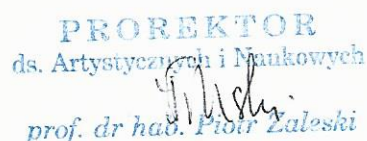 PROREKTOR
ds. Artystycznych i Naukowych
prof. dr hab. Piotr Zaleski